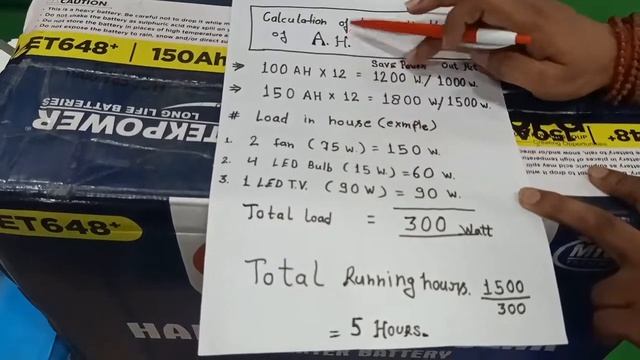 • This is a heavy battery. Be careful not to drop it while m
• Do not shake the battery as sulphuric acid may spill on
• Do not store the battery in places of high temperature
• Do not expose the battery to rain, snow and/or direct su
ET648+ 150Ah
LONG LIFE BATTERIES
TEKPOWER
ET648+
Calculation of
of A.H.
Save Power Out Put
→ 100 AH × 12 = 1200 W/1000 w.
→ 150 AH × 12 = 1800 W/1500 w.
# Load in house (exmple)
1. 2 fan (75 w.) = 150 w.
2. 4 LED Bulb (15 w.) = 60 w.
3. 1 LED T.V. (90 W) = 90 w.
Total Load = 300 Watt
Total Running hours. 1500/300
= 5 Hours.
150A
ET648+
BATTERY